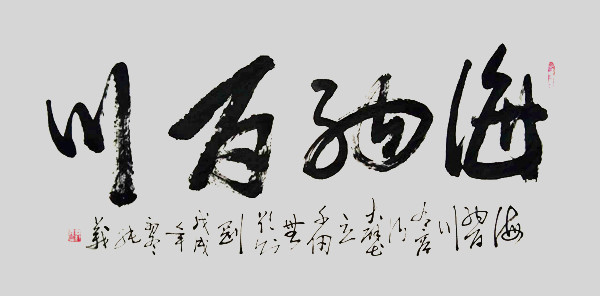 海納百川
海納百川有容乃大壁立千仞無欲則剛戊戌年